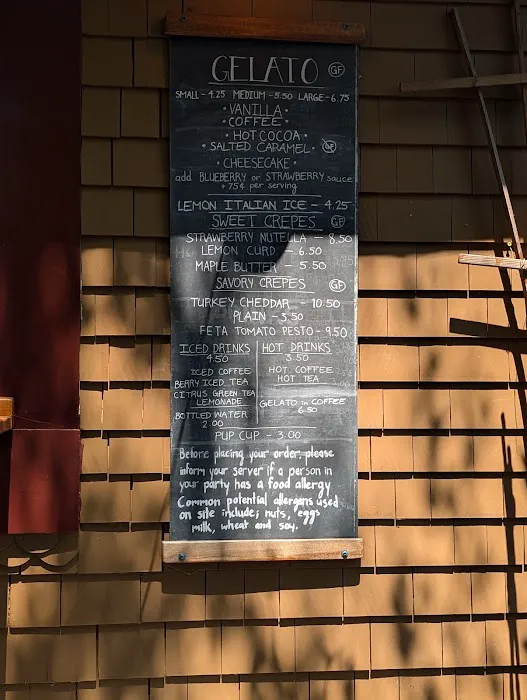 GELATO GF
SMALL - 4.25 MEDIUM - 5.50 LARGE - 6.75
• VANILLA •
• COFFEE •
• HOT COCOA •
• SALTED CARAMEL • GF
• CHEESECAKE •
add BLUEBERRY or STRAWBERRY sauce
+75¢ per serving
LEMON ITALIAN ICE - 4.25
SWEET CREPES GF
STRAWBERRY NUTELLA - 8.50
LEMON CURD - 6.50
MAPLE BUTTER - 5.50
SAVORY CREPES GF
TURKEY CHEDDAR - 10.50
PLAIN - 3.50
FETA TOMATO PESTO - 9.50
ICED DRINKS
4.50
ICED COFFEE
BERRY ICED TEA
CITRUS GREEN TEA
LEMONADE
BOTTLED WATER
2.00
HOT DRINKS
3.50
HOT COFFEE
HOT TEA
GELATO in COFFEE
6.50
PUP CUP - 3.00
Before placing your order, please
inform your server if a person in
your party has a food allergy
Common potential allergens used
on site include; nuts, eggs
milk, wheat and soy.